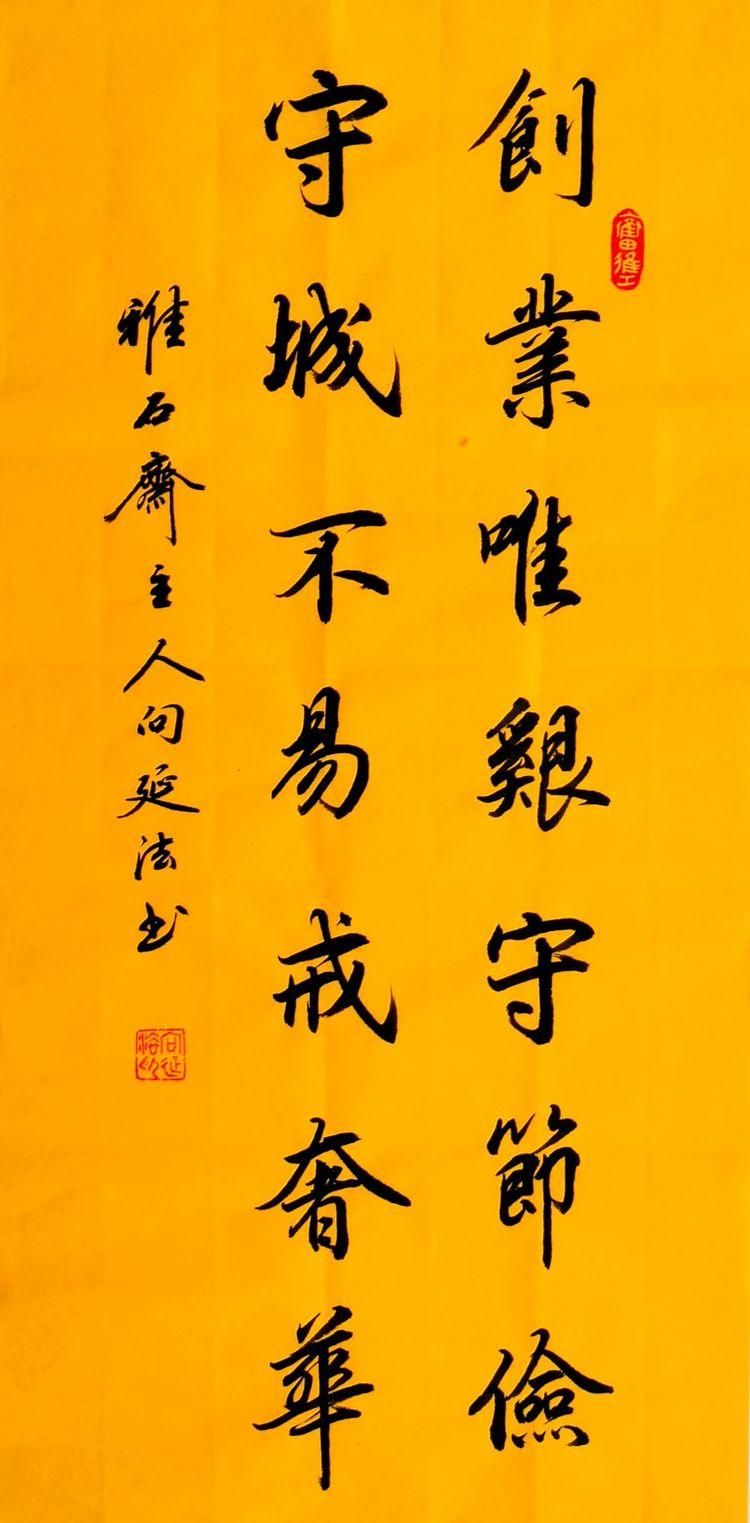 創業唯艱守節儉
守城不易戒奢華
雅石齋主人向延法书